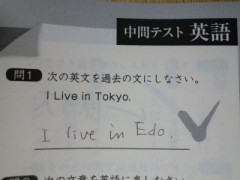 中間テスト 英語
問1 次の英文を過去の文にしなさい。
I Live in Tokyo.
I live in Edo.